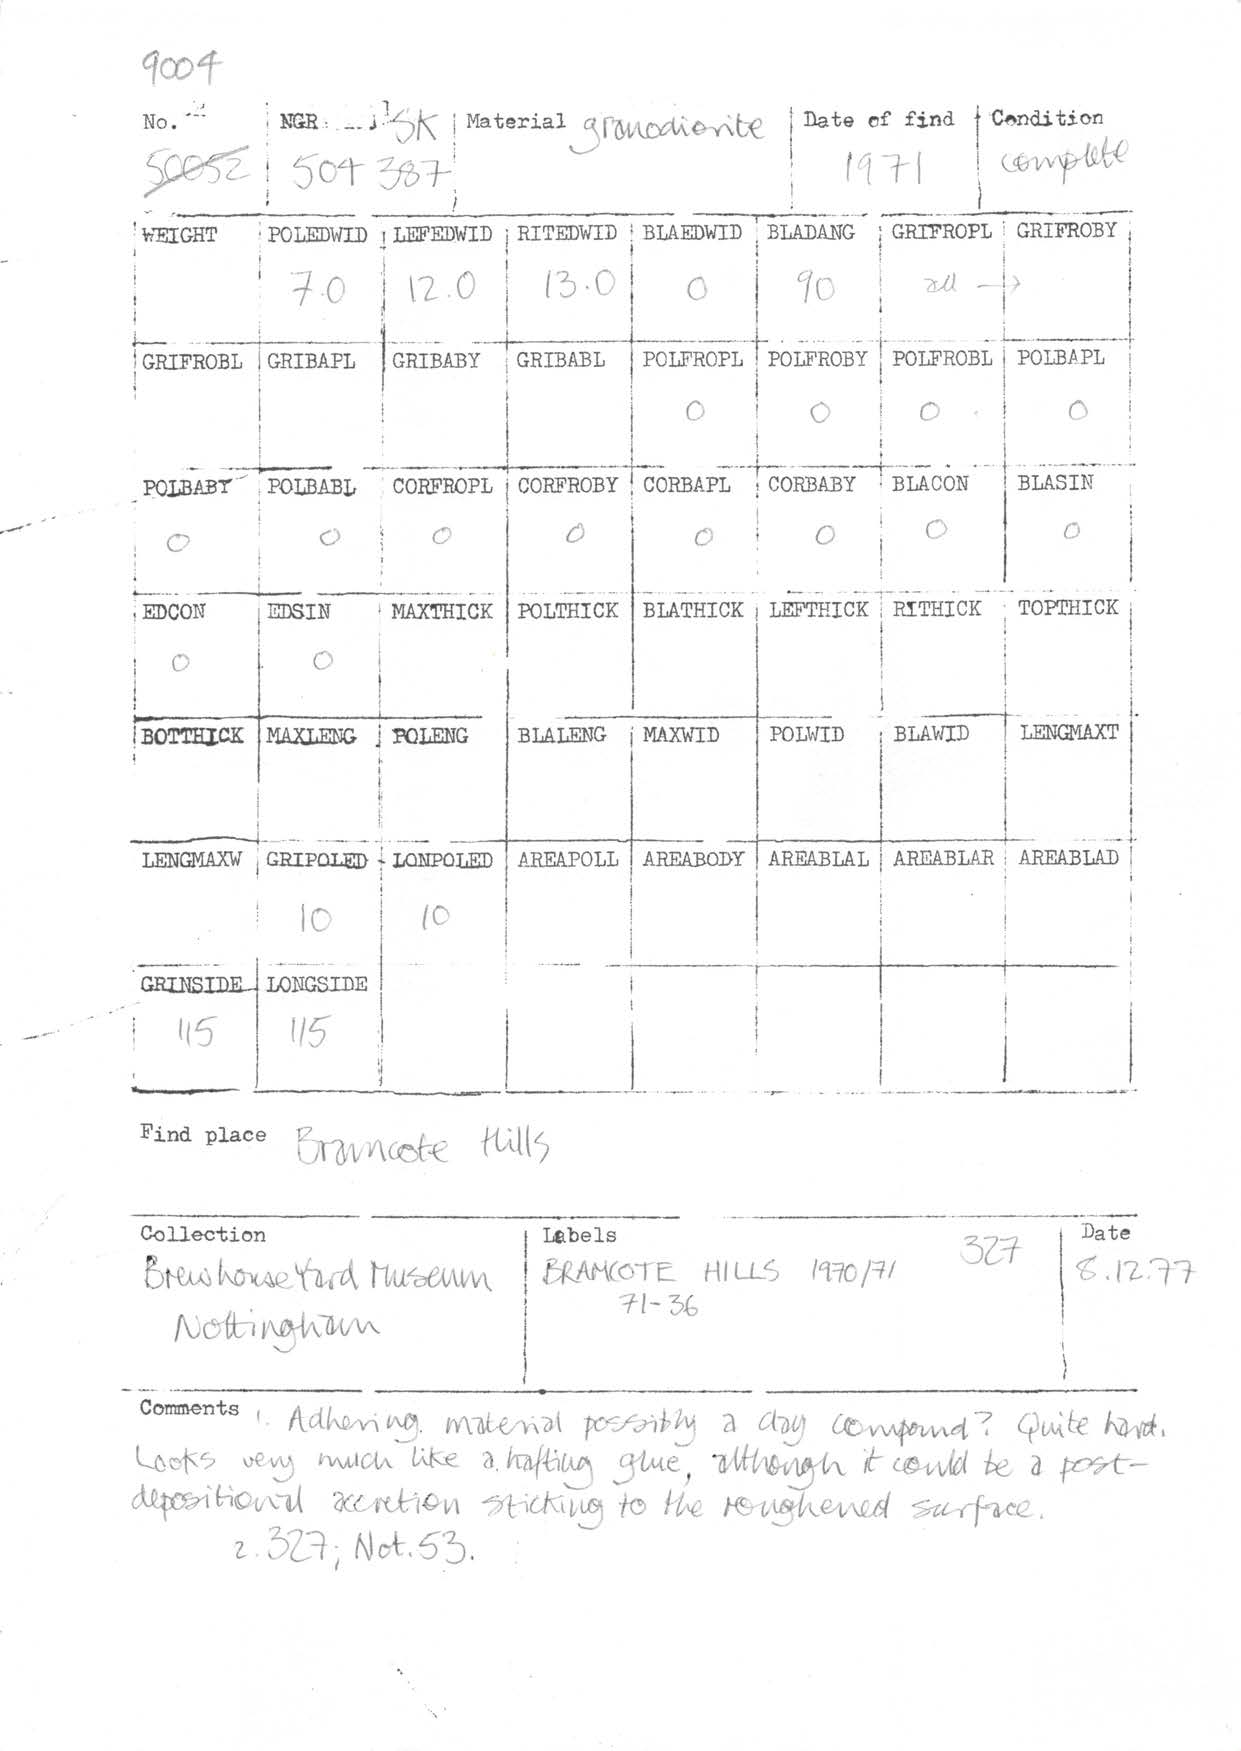 9004
No. NGR SK Material granodiorite Date of find Condition
50052 504 387 1971 complete
WEIGHT POLEDWID LEFEDWID RITEDWID BLAEDWID BLADANG GRIFROPL GRIFROBY
7.0 12.0 13.0 0 90 all →
GRIFROBL GRIBAPL GRIBABY GRIBABL POLFROPL POLFROBY POLFROBL POLBAPL
0 0 0 0
POLBABY POLBABL CORFROPL CORFROBY CORBAPL CORBABY BLACON BLASIN
0 0 0 0 0 0 0 0
EDCON EDSIN MAXTHICK POLTHICK BLATHICK LEFTHICK RITHICK TOPTHICK
0 0
BOTTHICK MAXLENG POLENG BLALENG MAXWID POLWID BLAWID LENGMAXT
LENGMAXW GRIPOLED LONPOLED AREAPOLL AREABODY AREABLAL AREABLAR AREABLAD
10 10
GRINSIDE LONGSIDE
115 115
Find place Bramcote Hills
Collection Labels 327 Date
Brewhouse Yard Museum BRAMCOTE HILLS 1970/71 8.12.77
71-36
Nottingham
Comments 1. Adhering material possibly a clay compound? Quite hard.
Looks very much like a hafting glue, although it could be a post-
depositional accretion sticking to the roughened surface.
2. 327; Not. 53.